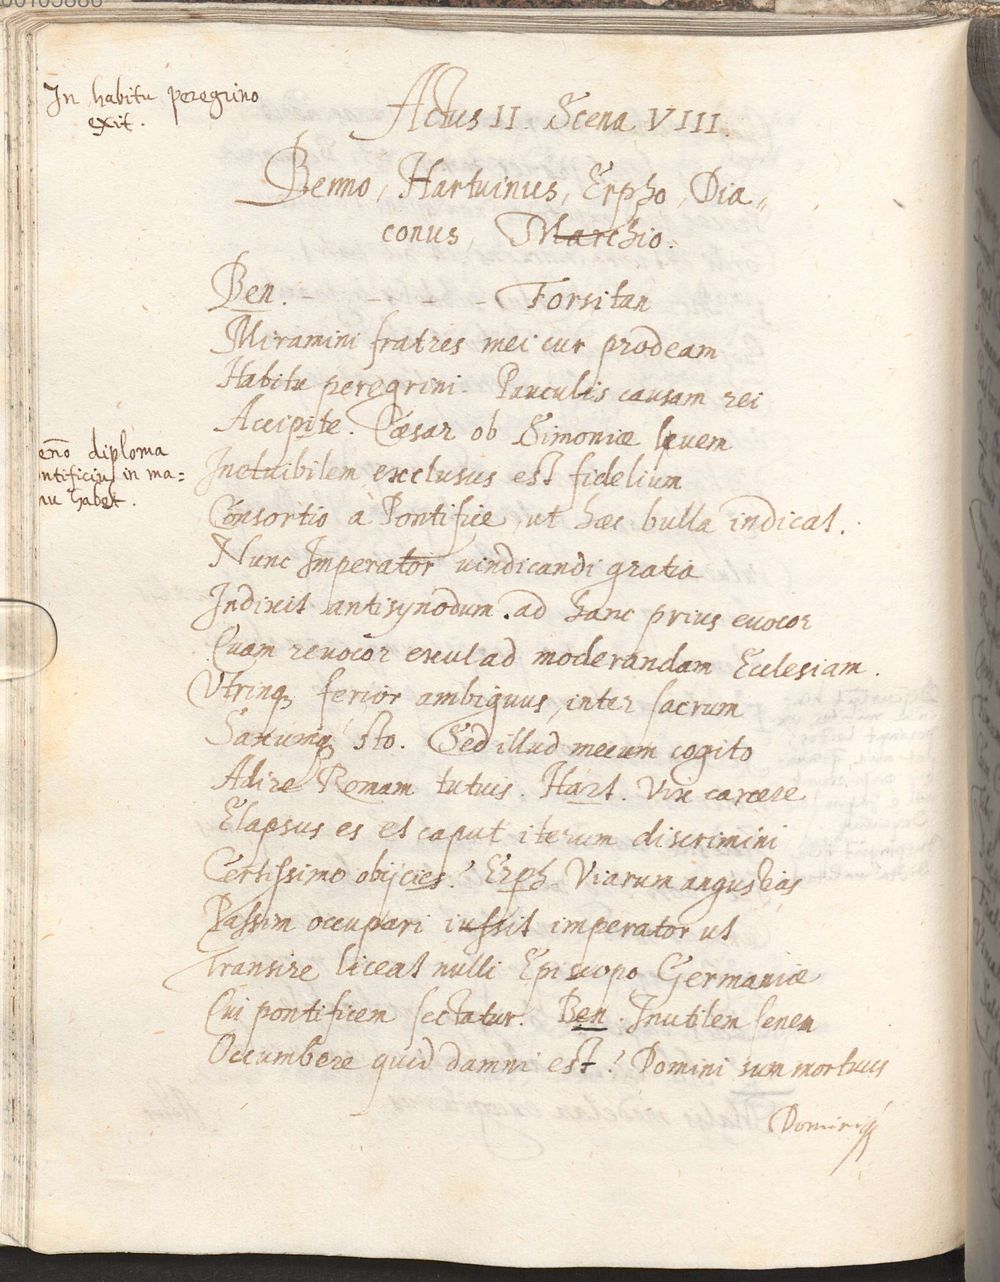 In habitu peregrino
exit.
Actus II. Scena VIII.
Benno, Hartuinus, Erpho, Dia„
conus, Marchio.
Ben. - - - Forsitan
Miramini fratres mei cur prodeam
Habitu peregrini. Pauculis causam rei
Accipite. Cæsar ob Simoniæ luem
eño diploma
ntificiu in ma=
nu habet.
Ineluibilem exclusus est fidelium
Consortio a Pontifice, ut hæc bulla indicat.
Nunc Imperator uindicandi gratia
Indixit antisynodum. ad hanc prius euocor
Quam reuocor exul ad moderandam Ecclesiam.
Vtrinq ferior ambiguus, inter sacrum
Saxumq sto. Sed illud mecum cogito
Adire Romam tutius. Hart. Vix carcere
Elapsus es et caput iterum discrimini
Certissimo obijcies? Erph Viarum angustias
Passim occupari iussit imperator ut
Transire liceat nulli Episcopo Germaniæ
Qui pontificem sectatur. Ben. Inutilem senem
Occumbere quid damni est? Domini sum mortuus
Domini